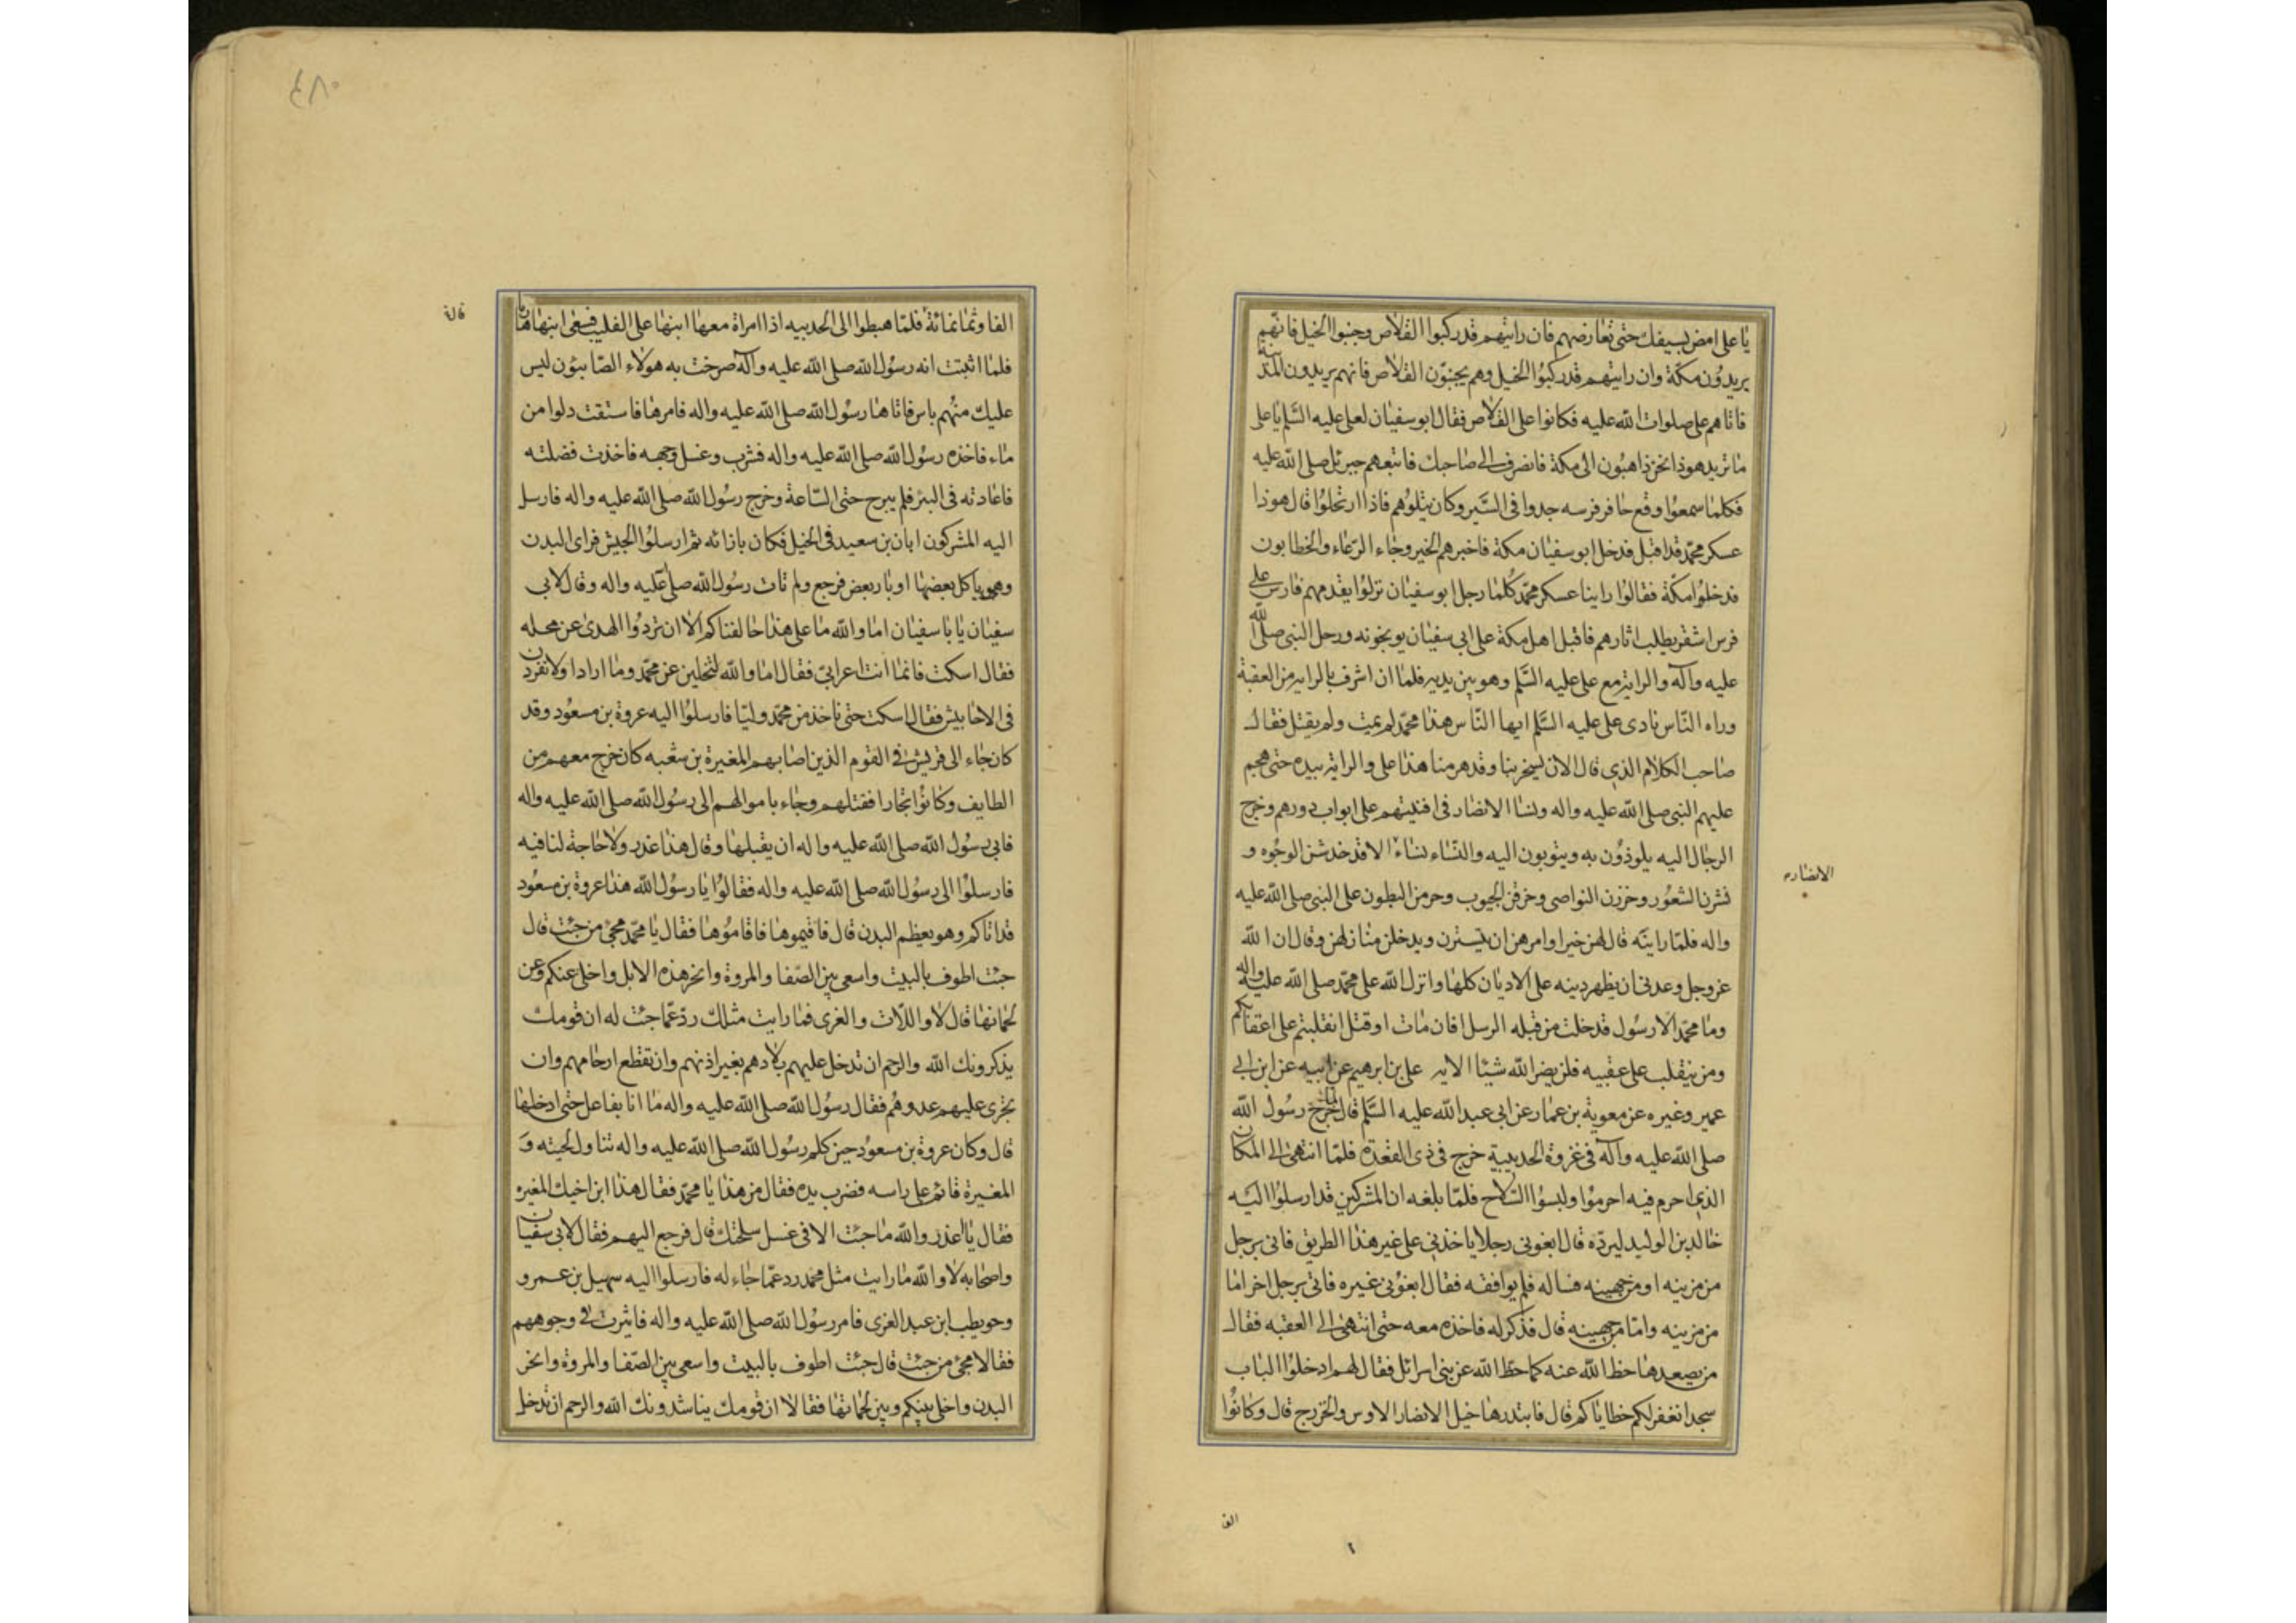 يا على امض بسيفك حتى تعارضهم فان رايتهم قد ركبوا القلاص وجنبوا الخيل فانهم
يريدون مكة وان رايتهم قد ركبوا الخيل وهم يجنبون القلاص فانهم يريدون المدينة
فاتاهم على صلوات الله عليه فكانوا على القلاص فقال ابو سفيان لعلى عليه السلم يا على
ما تريد هوذا نحن ذاهبون الى مكة فانصرف الى صاحبك فاتبعهم جبرئل صلى الله عليه
فكلما سمعوا وقع حافر فرسه جدوا فى السير وكان يتلوهم فاذا ارتحلوا قال هوذا
عسكر محمد قد اقبل فدخل ابو سفيان مكة فاخبرهم الخبر وجاء الرعاء والحطابون
فدخلوا مكة فقالوا راينا عسكر محمد كلما رحل ابو سفيان نزلوا يقدمهم فارس على
فرس اشقر يطلب اثارهم فاقبل اهل مكة على ابى سفيان يوبخونه ورحل النبى صلى الله
عليه وآله والراية مع على عليه السلم وهو بين يديه فلما ان اشرف بالراية من العقبة
وراه الناس نادى على عليه السلم ايها الناس هذا محمد لم يمت ولم يقتل فقال
صاحب الكلام الذى قال الان يسخر بنا وقد هزمنا هذا على والراية بيده حتى هجم
عليهم النبى صلى الله عليه واله ونساء الانصار فى افنيتهم على ابواب دورهم وخرج
الرجال اليه يلوذون به ويتوبون اليه والنساء نساء الا قد خدشن الوجوه و
الانصار
نشرن الشعور وجززن النواصى وخرقن الجيوب وحرمن البطون على النبى صلى الله عليه
واله فلما راينه قال لهن خيرا وامرهن ان يتسترن ويدخلن منازلهن وقال ان الله
عز وجل وعدنى ان يظهر دينه على الاديان كلها وانزل الله على محمد صلى الله عليه واله
وما محمد الا رسول قد خلت من قبله الرسل افان مات او قتل انقلبتم على اعقابكم
ومن ينقلب على عقبيه فلن يضر الله شيئا الايه على بن ابرهيم عن ابيه عن ابن ابى
عمير وغيره عن معوية بن عمار عن ابى عبد الله عليه السلم قال لما خرج رسول الله
صلى الله عليه وآله فى غزوة الحديبية خرج فى ذى القعدة فلما انتهى الى المكان
الذى احرم فيه احرموا ولبسوا السلاح فلما بلغه ان المشركين قد ارسلوا اليه
خالد بن الوليد ليرده قال ابغونى رجلا ياخذنى على غير هذا الطريق فاتى برجل
من مزينه او من جهينه فساله فلم يوافقه فقال ابغونى غيره فاتى برجل اخر اما
من مزينه واما من جهينه قال فذكر له فاخذه معه حتى انتهى الى العقبه فقال
من يصعدها حط الله عنه كما حط الله عن بنى اسرائل فقال لهم ادخلوا الباب
سجدا نغفر لكم خطاياكم قال فابتدرها خيل الانصار الاوس والخزرج قال وكانوا
الفا
٤٨٠
الفا وثمانمائة فلما هبطوا الى الحديبيه اذا امراة معها ابنها على القليب فسعى ابنها هاربا
فلما اثبتت انه رسول الله صلى الله عليه وآله صرخت به هولاء الصابئون ليس
عليك منهم باس فاتاها رسول الله صلى الله عليه واله فامرها فاستقت دلوا من
ماء فاخذه رسول الله صلى الله عليه واله فشرب وغسل وجهه فاخذت فضلته
فاعادته فى البئر فلم يبرح حتى الساعة وخرج رسول الله صلى الله عليه واله فارسل
اليه المشركون ابان بن سعيد فى الخيل فكان بازائه ثم ارسلوا الحبيش فراى البدن
وهى ياكل بعضها اوبار بعض فرجع ولم يات رسول الله صلى عليه واله وقال لابى
سفيان يا با سفيان اما والله ما على هذا حالفناكم الا ان تردوا الهدى عن محله
فقال اسكت فانما انت اعرابى فقال اما والله لتخلين عن محمد وما ارادا ولانفردن
فى الاحابيش فقال اسكت حتى ناخذ من محمد ولتا فارسلوا اليه عروة بن مسعود وقد
كان جاء الى قريش فى القوم الذين اصابهم المغيرة بن شعبه كان خرج معهم من
الطايف وكانوا تجارا فقتلهم وجاء باموالهم الى رسول الله صلى الله عليه واله
فابى رسول الله صلى الله عليه واله ان يقبلها وقال هذا غدر ولا حاجة لنا فيه
فارسلوا الى رسول الله صلى الله عليه واله فقالوا يا رسول الله هذا عروة بن مسعود
قد اتاكم وهو يعظم البدن قال فاقيموها فاقاموها فقال يا محمد مجئ من جئت قال
جئت اطوف بالبيت واسعى بين الصفا والمروة وانحر هذه الابل واخلى عنكم وعن
لحمانها قال لا واللات والعزى فما رايت مثلك رد عما جئت له ان قومك
يذكرونك الله والرحم ان تدخل عليهم بلادهم بغير اذنهم وان تقطع ارحامهم وان
تجرى عليهم عدوهم فقال رسول الله صلى الله عليه واله ما انا بفاعل حتى ادخلها
قال وكان عروة بن مسعود حين كلم رسول الله صلى الله عليه واله تناول لحيته و
المغيرة قائم على راسه فضرب يده فقال من هذا يا محمد فقال هذا ابن اخيك المغيره
فقال يا غدر والله ما جئت الا فى غسل سلحتك قال فرجع اليهم فقال لابى سفيان
واصحابه لا والله ما رايت مثل محمد رد عما جاء له فارسلوا اليه سهيل بن عمرو
وحويطب ابن عبد العزى فامر رسول الله صلى الله عليه واله فاثيرت فى وجوههم
فقالا مجئ من جئت قال جئت اطوف بالبيت واسعى بين الصفا والمروة وانحر
البدن واخلى بينكم وبين لحمانها فقالا ان قومك يناشدونك الله والرحم ان تدخل